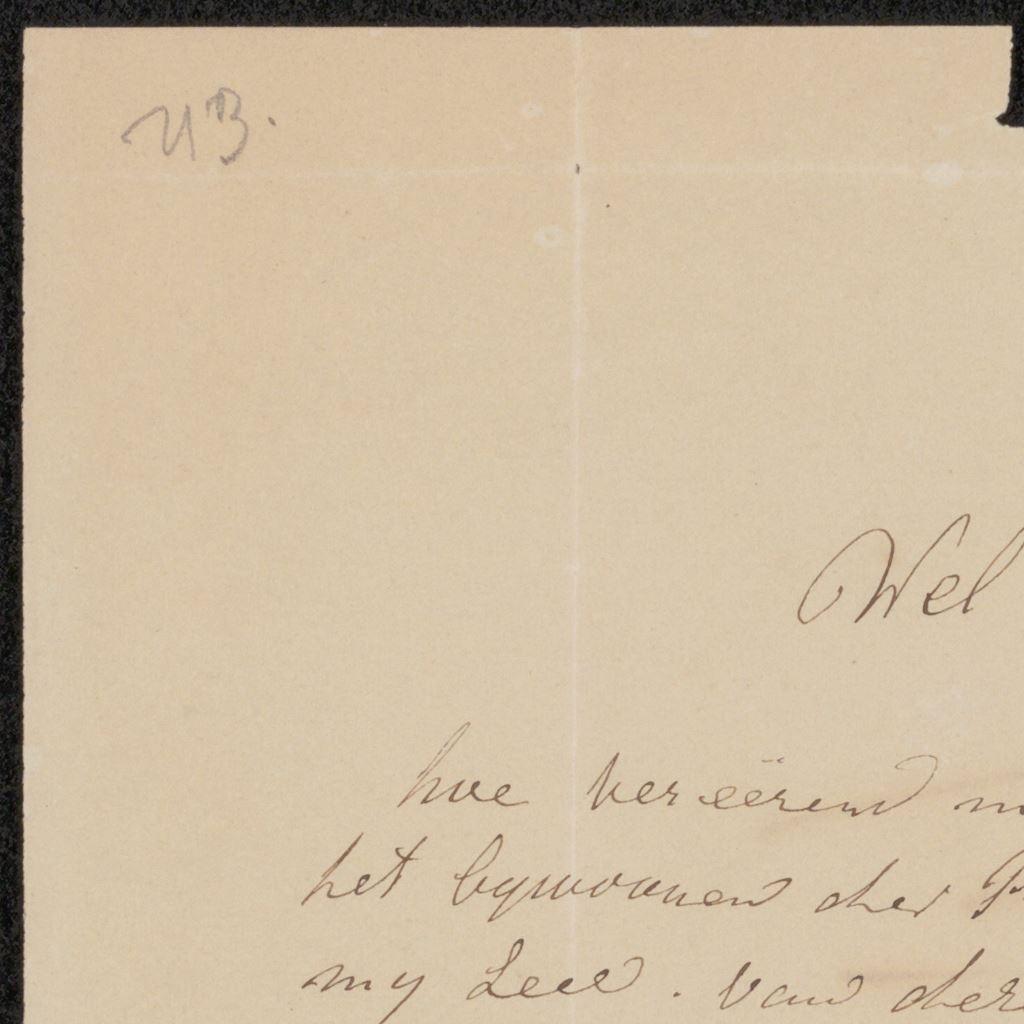 UB.
Wel
hoe vereërend m
het bywoonen der
my Leed. Van der